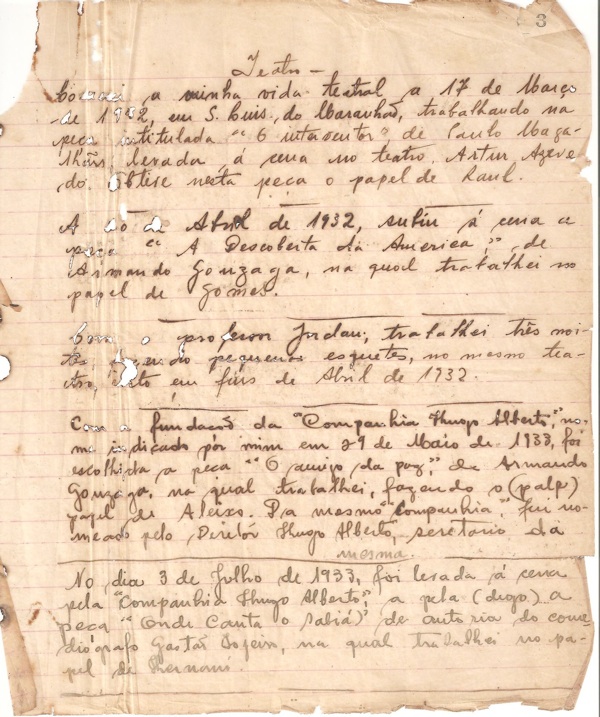 3
Teatro -
a minha vida teatral a 17 de Março
de 1932, em S. Luis, do Maranhão, trabalhando na
peça intitulada "O interventor" de Paulo Maga-
lhães, levada á cena no teatro Artur Azeve-
do. Obtive nesta peça o papel de Raul.
A de Abril de 1932, subiu á cena a
peça "A Descoberta da America", de
Armando Gonzaga, na qual trabalhei no
papel de Gomes.
Com o professor Jordau, trabalhei três noi-
tes fazendo pequenos esquetes, no mesmo tea-
tro, isto em fins de Abril de 1932.
Com a fundação da "Companhia Thugo Alberto", no-
me indicado pór mim em 29 de Maio de 1933, foi
escolhida a peça "O amigo da paz", de Armando
Gonzaga, na qual trabalhei, fazendo o (palp)
papel de Aleixo. Da mesmo "Companhia," fui no-
meado pelo Diretôr Thugo Alberto, secretario da
mesma.
No dia 3 de Julho de 1933, foi levada á cena
pela "Companhia Thugo Alberto", a pela (digo) a
peça "Onde Canta o Sabiá)" de autoria do come-
diógrafo Gastão Tojeiro, na qual trabalhei no pa-
pel de Hernani.